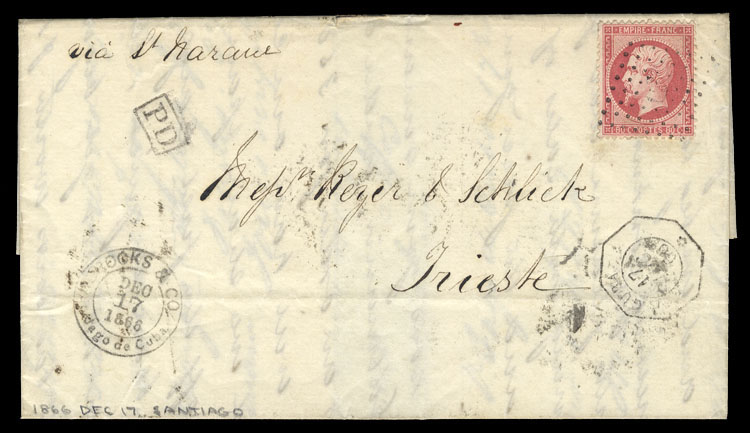 via St Nazaire
EMPIRE FRANC.
80 C POSTES 80 C
PD
Messrs Reyer & Schlick
Trieste
BROOKS & CO.
DEC
17
1866
Santiago de Cuba
17
CUBA
1866 DEC 17 SANTIAGO